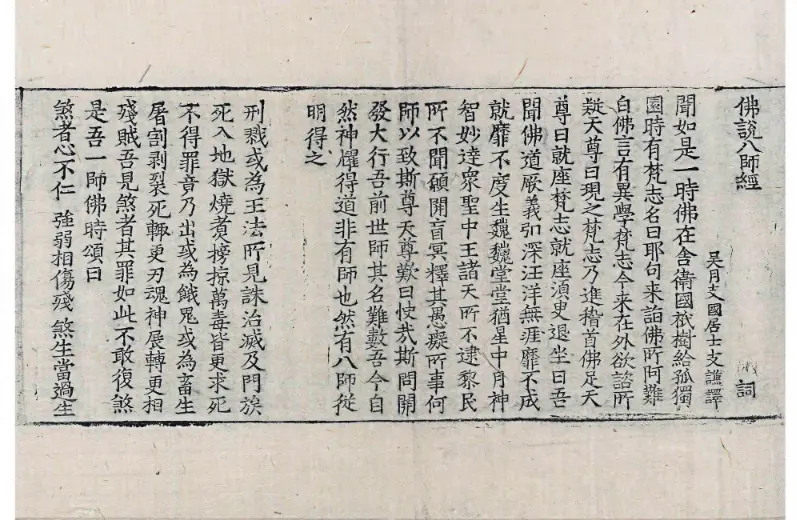 佛說八師經 詞
吳月支國居士支謙譯
聞如是一時佛在舍衛國祇樹給孤獨
園時有梵志名曰耶句来詣佛所阿難
白佛言有異學梵志今来在外欲諮所
疑天尊曰現之梵志乃進稽首佛足天
尊曰就座梵志就座湏臾退坐曰吾
聞佛道厥義弘深汪洋無涯靡不成
就靡不度生巍巍堂堂猶星中月神
智妙達衆聖中王諸天所不逮黎民
所不聞願開盲冥釋其愚癡所事何
師以致斯尊天尊歎曰快哉斯問開
發大行吾前世師其名難數吾今自
然神燿得道非有師也然有八師從
明得之
刑戮或為王法所見誅治滅及門族
死入地獄燒煮搒掠萬毒皆更求死
不得罪竟乃出或為餓鬼或為畜生
屠割剥裂死輙更刃魂神展轉更相
殘賊吾見煞者其罪如此不敢復煞
是吾一師佛時頌曰
煞者心不仁 強弱相傷殘 煞生當過生